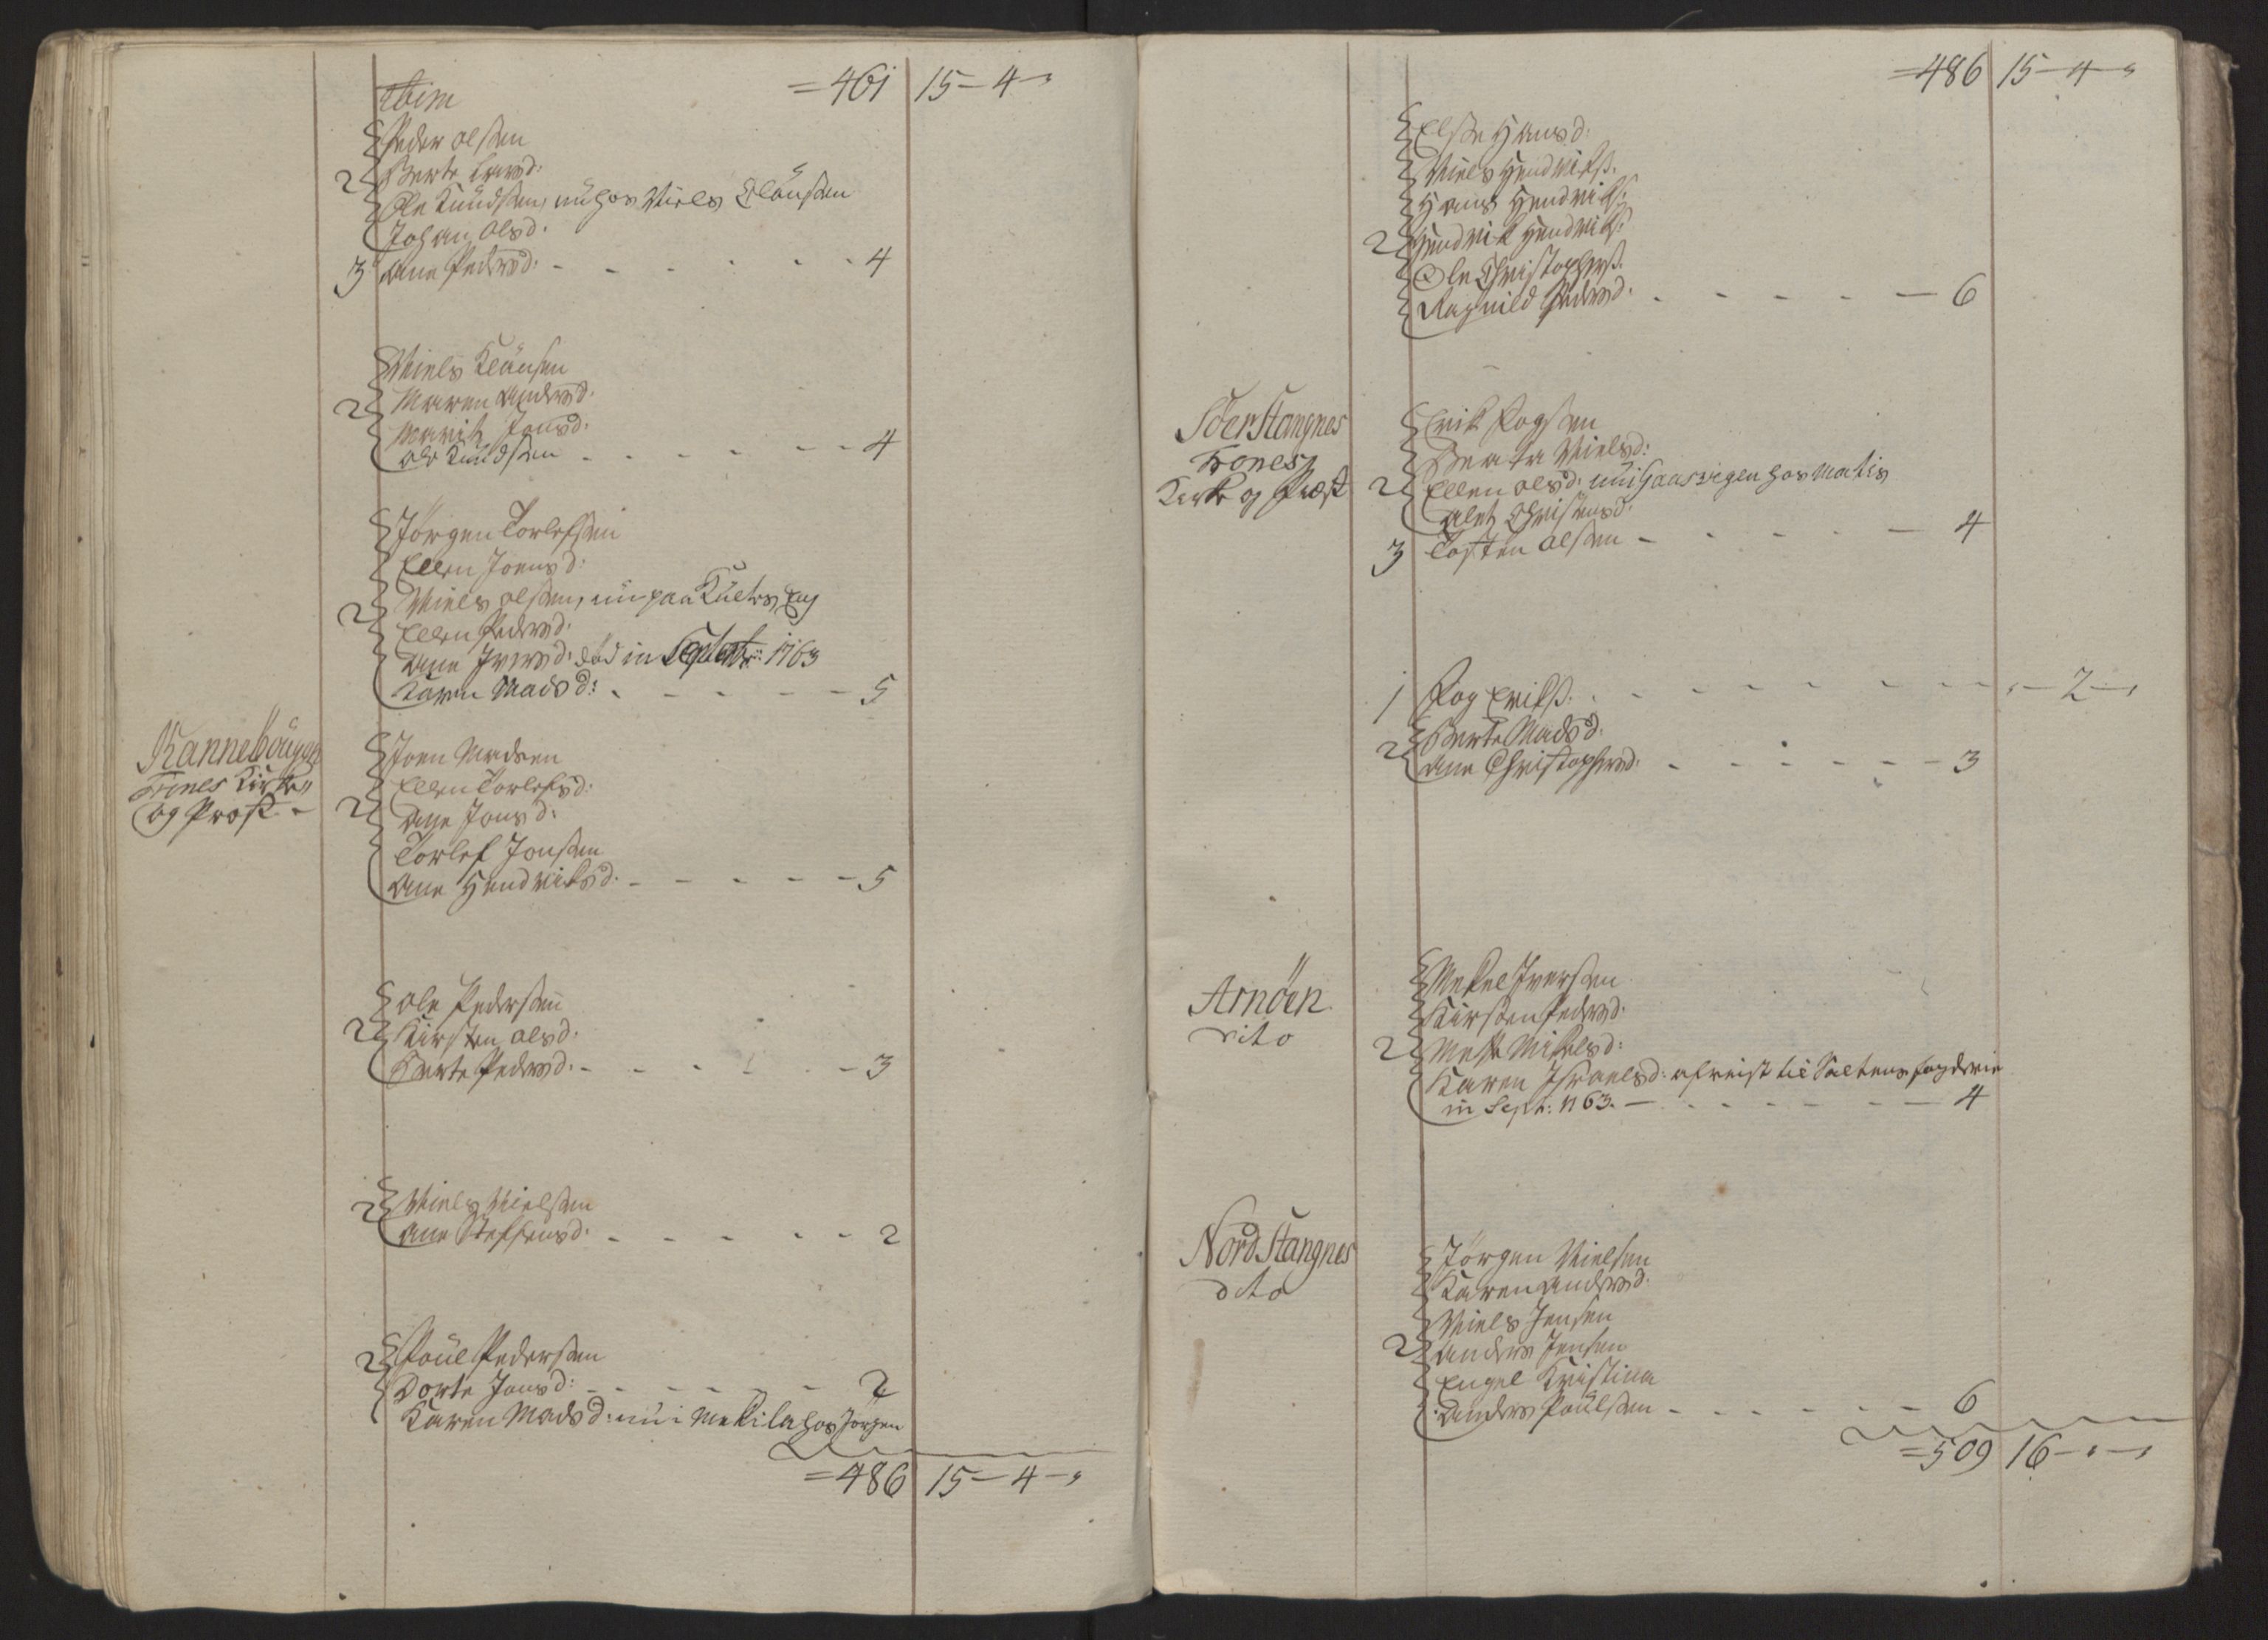 Ibim =461 15-4-,
Peder Olssen
2 Berte Larsd:
Ole Knudssen, nu hos Niels Claussen
Johan Olsd.
3 Ane Pedersd: - - - - - 4
Niels Klausen
2 Maren Andersd.
Marith Jonsd:
Ole Knudssen - - - - - 4
Jörgen Torlefssen
Ellen Joensd:
2 Niels Olssen, nu paa Eng
Ellen Pedersd.
Ane Iversd: död in Septembr: 1763
Karen Madsd: - - - - - 5
Kannebougen
Trones Kirke
og Præst
Joen Madsen
Ellen Torlefsd:
2 Ane Jonsd:
Torlef Jonssen
Ane Hendriksd. - - - - - 5
Ole Pederssen
2 Kirsten Olsd.
Berte Pedersd. - - - - - 3
2 Niels Nielssen
Ane Steffensd. - - - - - 2
2 Poul Pederssen
Dorte Jonsd: - - - - - 2
Karen Madsd: nu i Mekila hos Jörgen
=486 15-4-,
=486 15-4-,
Elsse Hansd:
Niels Hendrikss.
Hans Hendrikss:
2 Hendrik Hendrikss:
Ole Christopherss.
Ragnild Pedersd. - - - - - 6
Söer Stangnes
Trones
Kirke og Præst
Erik Fogssen
Beata Nielsd:
2 Ellen Olsd. nu i hos Matis
Alet Christensd.
3 Tosten Olssen - - - - - 4
1 Fog Erikss. - - - - - ,-2-,
2 Berte Madsd.
Ane Christophersd. - - - - - 3
Arnöen
dito
Mekel Iverssen
Kirsten Pedersd.
2 Mette Mikelsd:
Karen Israelsd: afreist til Saltens fogderie
in Sept: 1763. - - - - - 4
Nord Stangnes
dito
Jörgen Nielsen
Karen Andersd.
Niels Jensen
2 Anders Jensen
Engel Kristina
Anders Poulssen - - - - - 6
=509 16-,-,